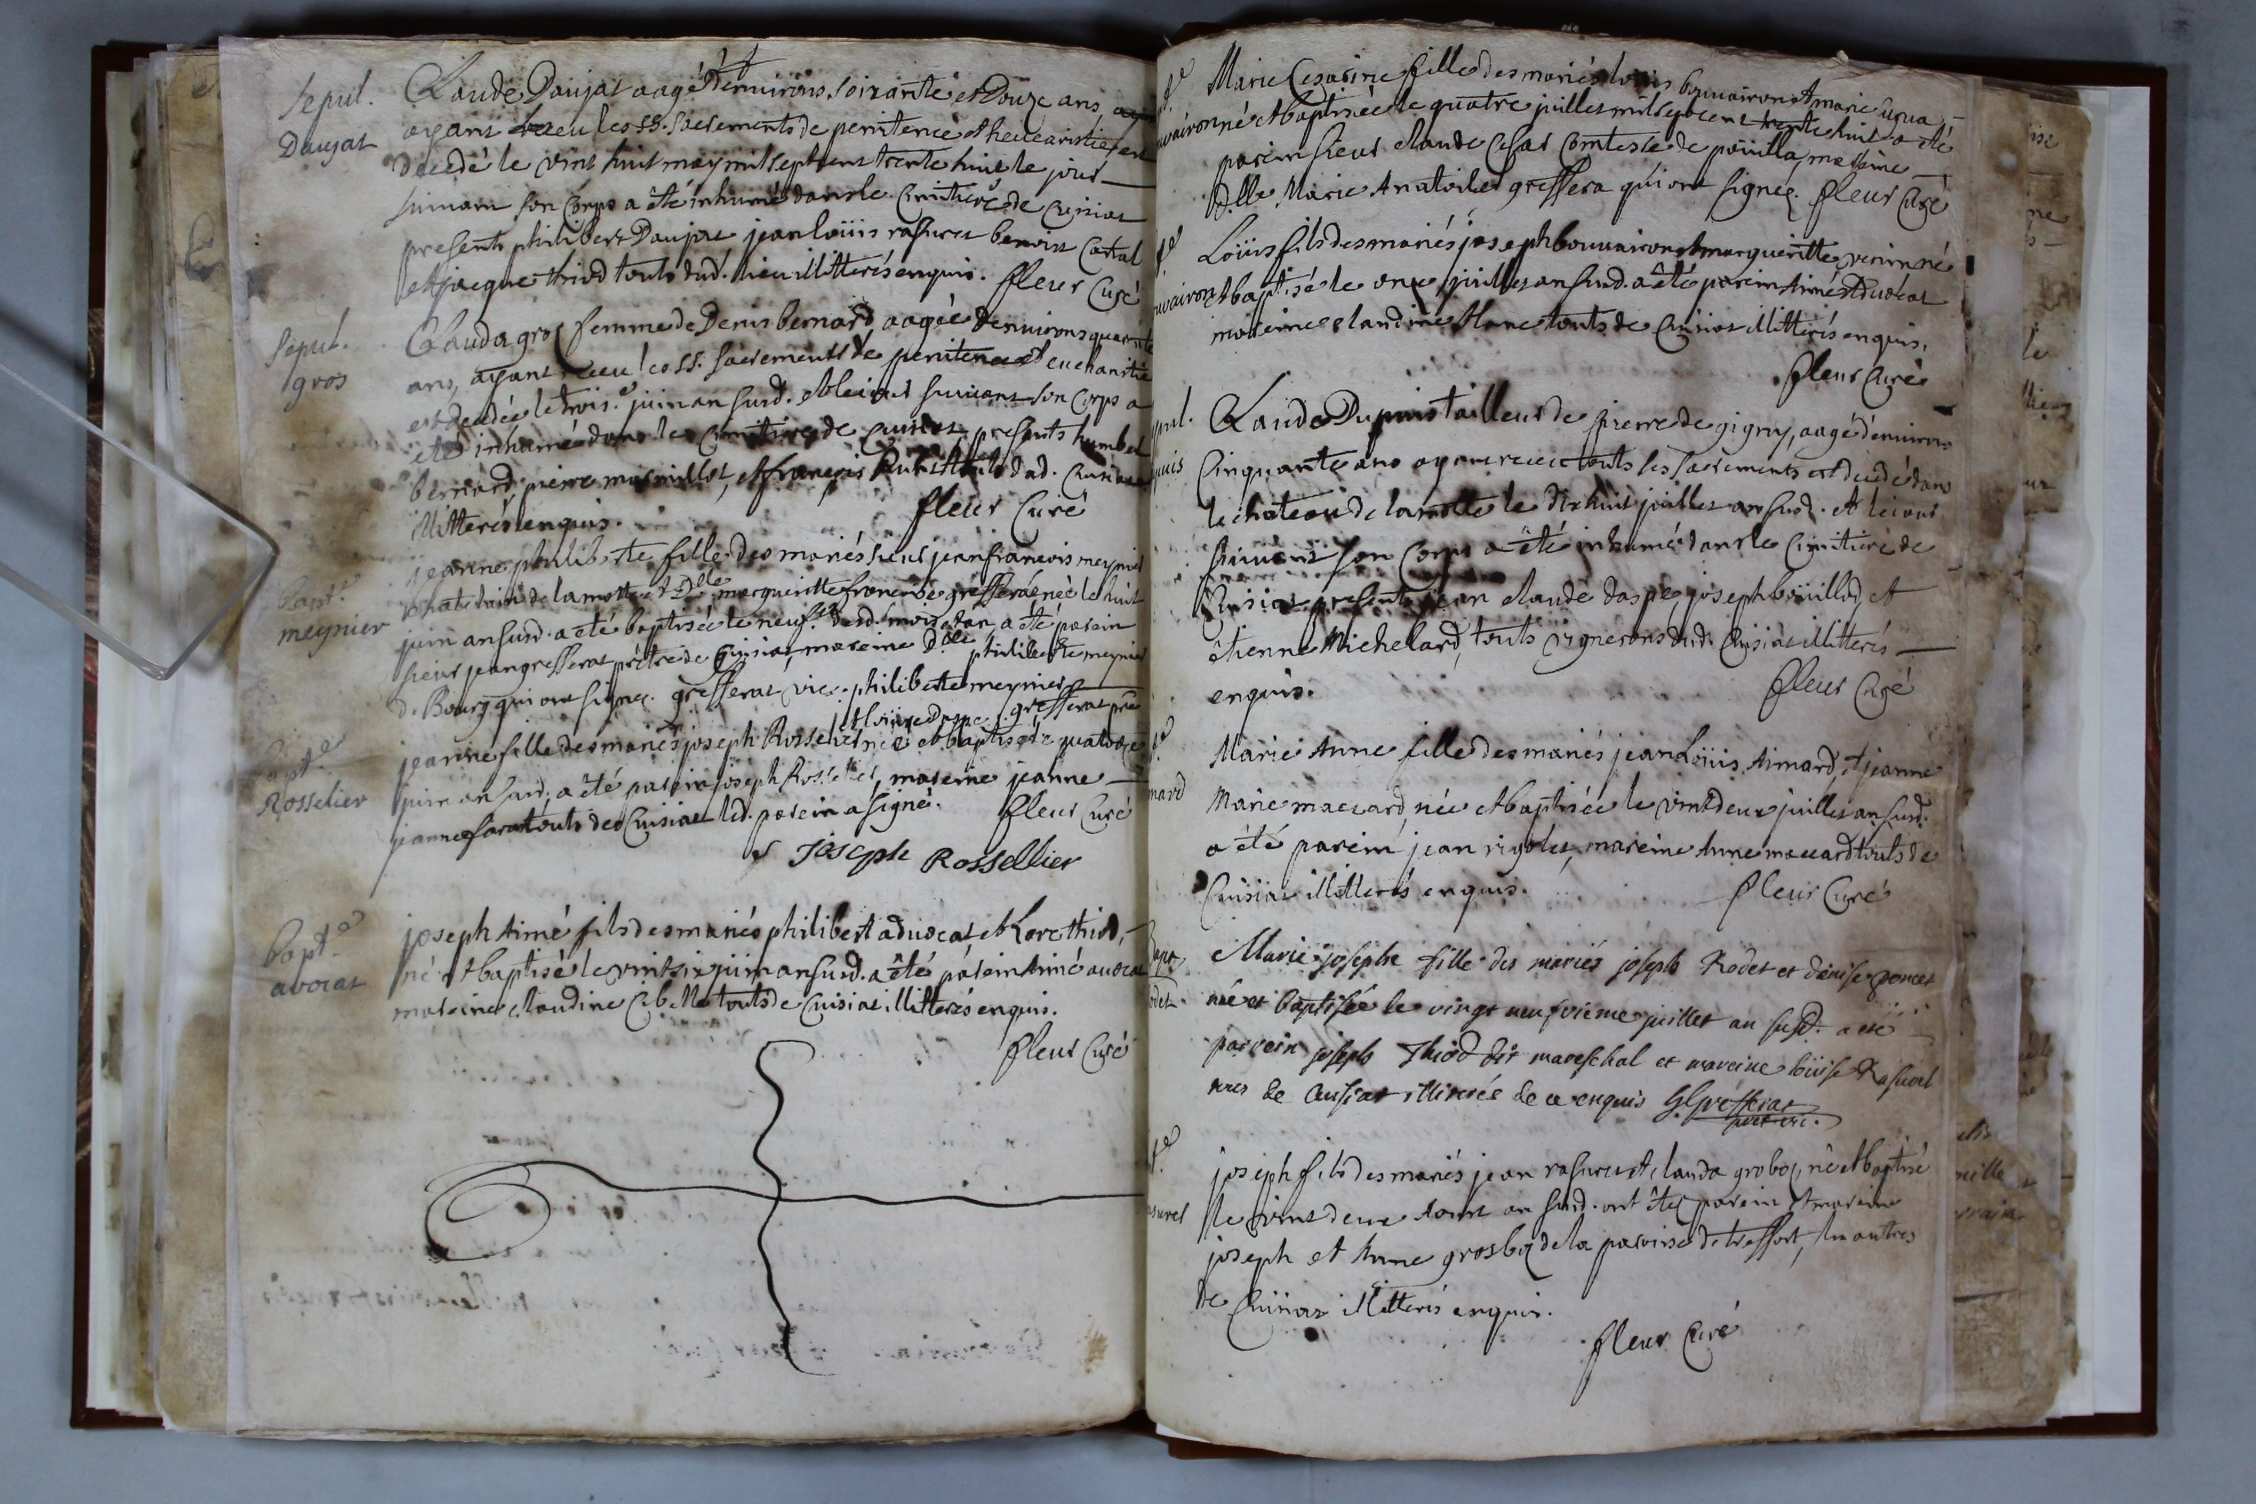 Sepul.
Daujat
Claude Daujat aagé d'environs soixante et Douze ans,
ayant receu les SS. sacrements de penitence et heucaristie, est
decedé le vint huit may mil sept cent trente huit le jour
suivant son corps a êté inhumé dans le cimitiere de Cuisiat
presents philibert Daujat jean loüis rasurel benoist Cartal
et jacque thiod touts dud. lieu illitterés enquis. fleur Curé
Sepul.
gros
Clauda gros femme de Denis bernard, aagée d'environs quarante
ans, ayant receu les SS. sacrements de penitence et eucharistie
est decedée le trois.e juin an susd. et le jour suivant son corps a
êté inhumé dans le cimitiere de Cuisiat, presents humbert
bernard, pierre marmillot, et françois touts dud. Cuisiat
illitterés enquis. fleur Curé
Bapt.e
meynier
jeanne philiberte fille des mariés sieur jean francois meynier
chatelain de la motte et D.lle margueritte francoise gresserat née le huit
juin an susd. a eté baptisée le neuf.e dud. mois et an a êté parein
sieur jean gresserat prêtre de Cuisiat, mareine D.lle philiberte meynier
d. Bourg qui ont signez. gresserat vic. philiberte meynier
gresserat prê
Bapt.e
Rosselier
et loüise Daspe
jeanne fille des mariés joseph Rosselier née et baptisée le quatorze
juin an susd. a êté parein joseph Rosselier, mareine jeanne
jeannesarat touts de Cuisiat led. parein a signé. fleur Curé
Joseph Rossellier
Bapt.e
avocat
joseph Aimé fils des mariés philibert advocat, et Lore thiod,
né et baptisé le vint six juin an susd. a êté parein Aimé avocat
mareine Claudine Cibelle touts de Cuisiat illitterés enquis.
fleur Curé
Marie Cesarine fille des mariés loüis bouvairon et marie
né et baptisée le quatre juillet mil sept cent trente huit a eté
parein sieur claude Cesar Comte de poüilla, mareine
D.lle Marie Anatoile gressera qui ont signéz. fleur Curé
Loüis fils des mariés joseph bouvairon et margueritte verin né
et baptisé le onze juillet an susd. a êté parein Aimé Advocat
mareine claudine Alane touts de Cuisiat illitterés enquis.
fleur Curé
Claude Dupuis tailleur de pierre de gigny, aagé d'environs
Cinquante ans ayant receu touts les sacrements est decedé dans
le chateau de lamotte le dix huit juillet an susd. et le jour
suivant son corps a êté inhumé dans le cimitiere de
Cuisiat presents jean claude daspe, joseph boüillod, et
êtienne Michelard, touts vignerons dud. Cuisiat illitterés
enquis. fleur Curé
mard
Marie Anne fille des mariés jean Loüis Aimard, et jeanne
Marie maccard, née et baptisée le vint deux juillet an susd.
a êté parein jean rigolet, mareine Anne maccard touts de
Cuisiat illitterés enquis. fleur Curé
Bapt.
odet.
Marie josephe fille des mariés joseph Rodet et denise poncet
née et baptisée le vingt neufvieme juillet an susd. a eté
parrein joseph Thiod dit mareschal et mareine loüise Rasurel
tous de Cuisiat illiterés de ce enquis G Gresserat
pret vic.
surel
joseph fils des mariés jean rasurel et clauda grobos, né et baptisé
le vint deux Aoust an susd. ont êtez parein et mareine
joseph et Anne grosbos de la paroisse de treffort, les autres
de Cuisiat illitterés enquis.
fleur Curé